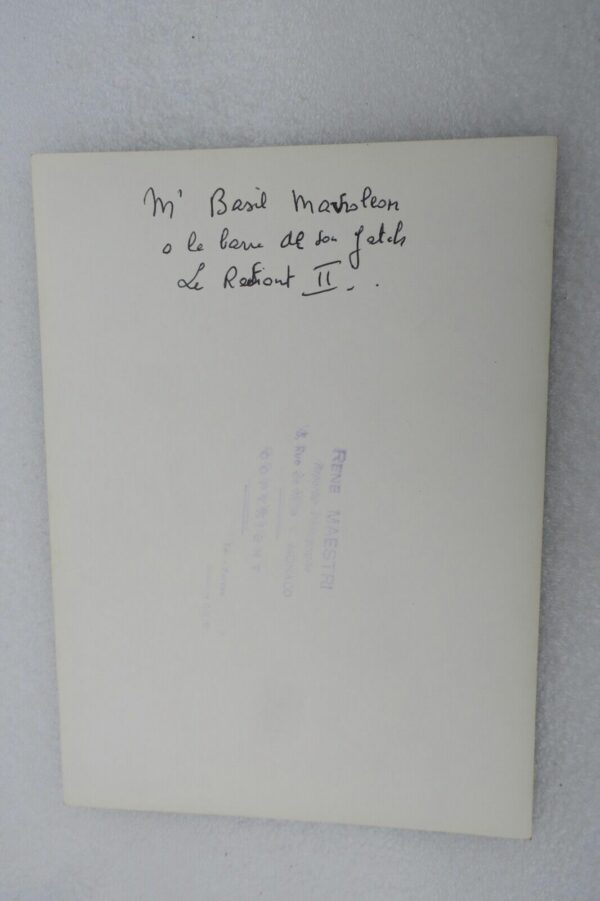 Mr Basil Mavroleon
a la barre de son Yatch
Le Radiant II . .
RENE MAESTRI
Rue
MONACO
COPYRIGHT